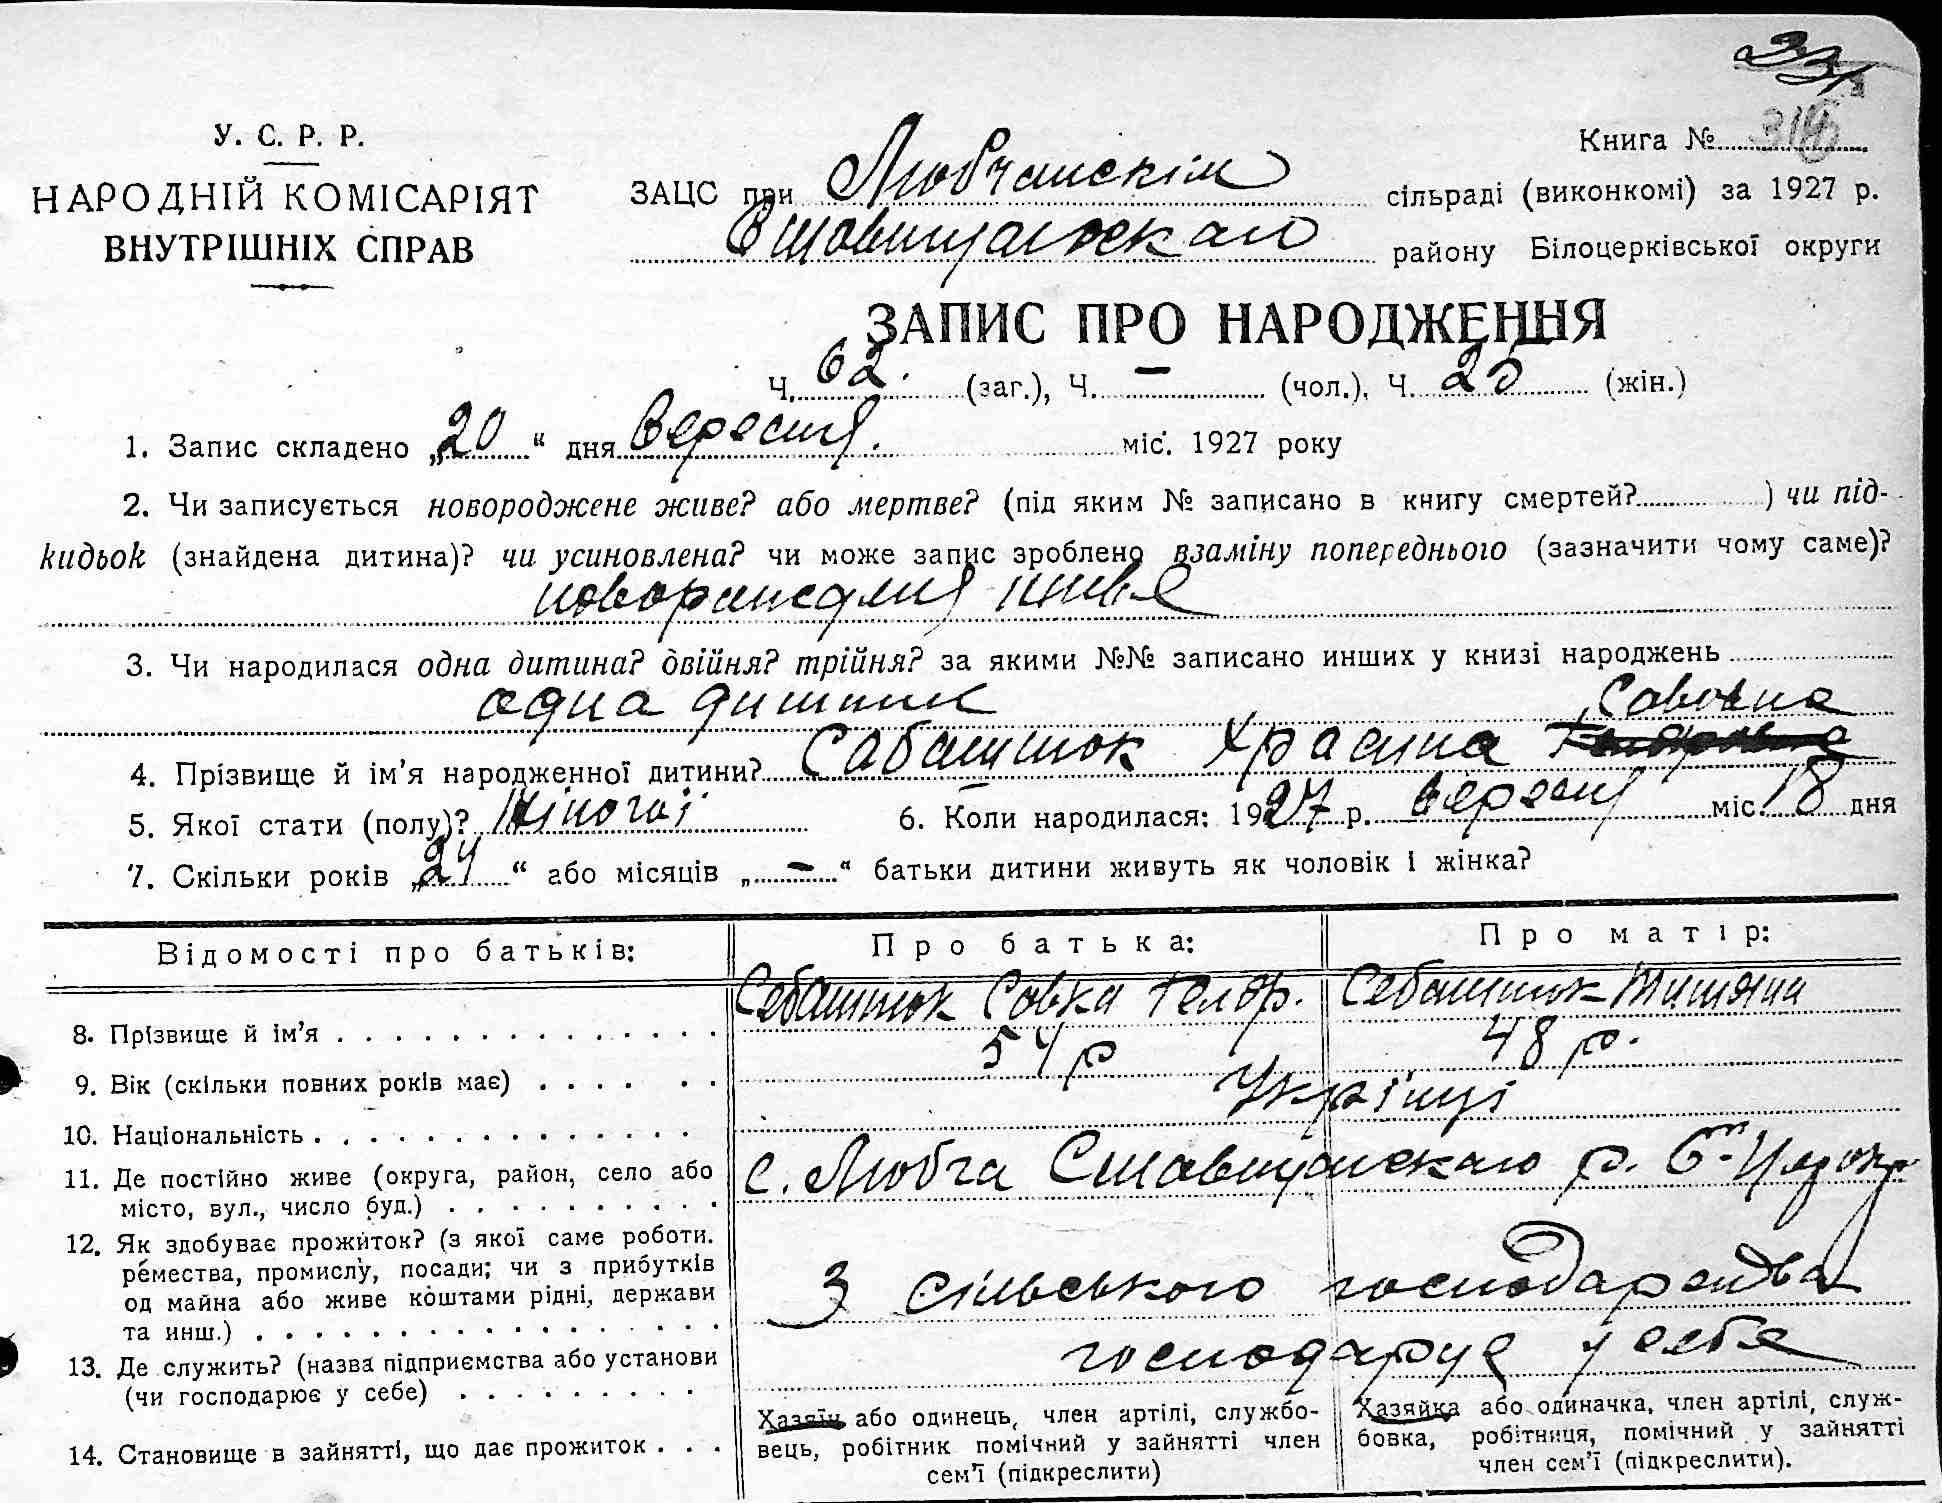 У. С. Р. Р.
НАРОДНІЙ КОМІСАРІЯТ
ВНУТРІШНІХ СПРАВ
Книга №
ЗАЦС при Любчанскім сільраді (виконкомі) за 1927 р.
Ставищанскаго району Білоцерківської округи
ЗАПИС ПРО НАРОДЖЕННЯ
Ч. 62. (заг.), Ч. — (чол.), Ч. 25 (жін.)
1. Запис складено „20“ дня Вересня. міс. 1927 року
2. Чи записується новороджене живе? або мертве? (під яким № записано в книгу смертей? ) чи під-
кидьок (знайдена дитина)? чи усиновлена? чи може запис зроблено взаміну попереднього (зазначити чому саме)?
живе
3. Чи народилася одна дитина? двійня? трійня? за якими №№ записано инших у книзі народжень
одна дитина
Сововна
4. Прізвище й ім’я народженної дитини? Сабашток Храсина
5. Якої стати (полу)? Жіночої 6. Коли народилася: 1927 р. Вересня міс. 18 дня
7. Скільки років „24“ або місяців „—“ батьки дитини живуть як чоловік і жінка?
Відомості про батьків: Про батька: Про матір:
8. Прізвище й ім’я Себашток Совка Себашток
9. Вік (скільки повних років має) 54 р 48 р.
10. Національність Українці
11. Де постійно живе (округа, район, село або
місто, вул., число буд.) с. Любча Ставищанскаго р.
12. Як здобуває прожиток? (з якої саме роботи.
ремества, промислу, посади; чи з прибутків
од майна або живе коштами рідні, держави
та инш.) З сільського господарства
13. Де служить? (назва підприємства або установи
(чи господарює у себе) господарує у себе
14. Становище в зайнятті, що дає прожиток
Хазяїн або одинець, член артілі, службо-
вець, робітник помічний у зайнятті член
сем’ї (підкреслити)
Хазяйка або одиначка, член артілі, служ-
бовка, робітниця, помічний у зайнятті
член сем’ї (підкреслити).